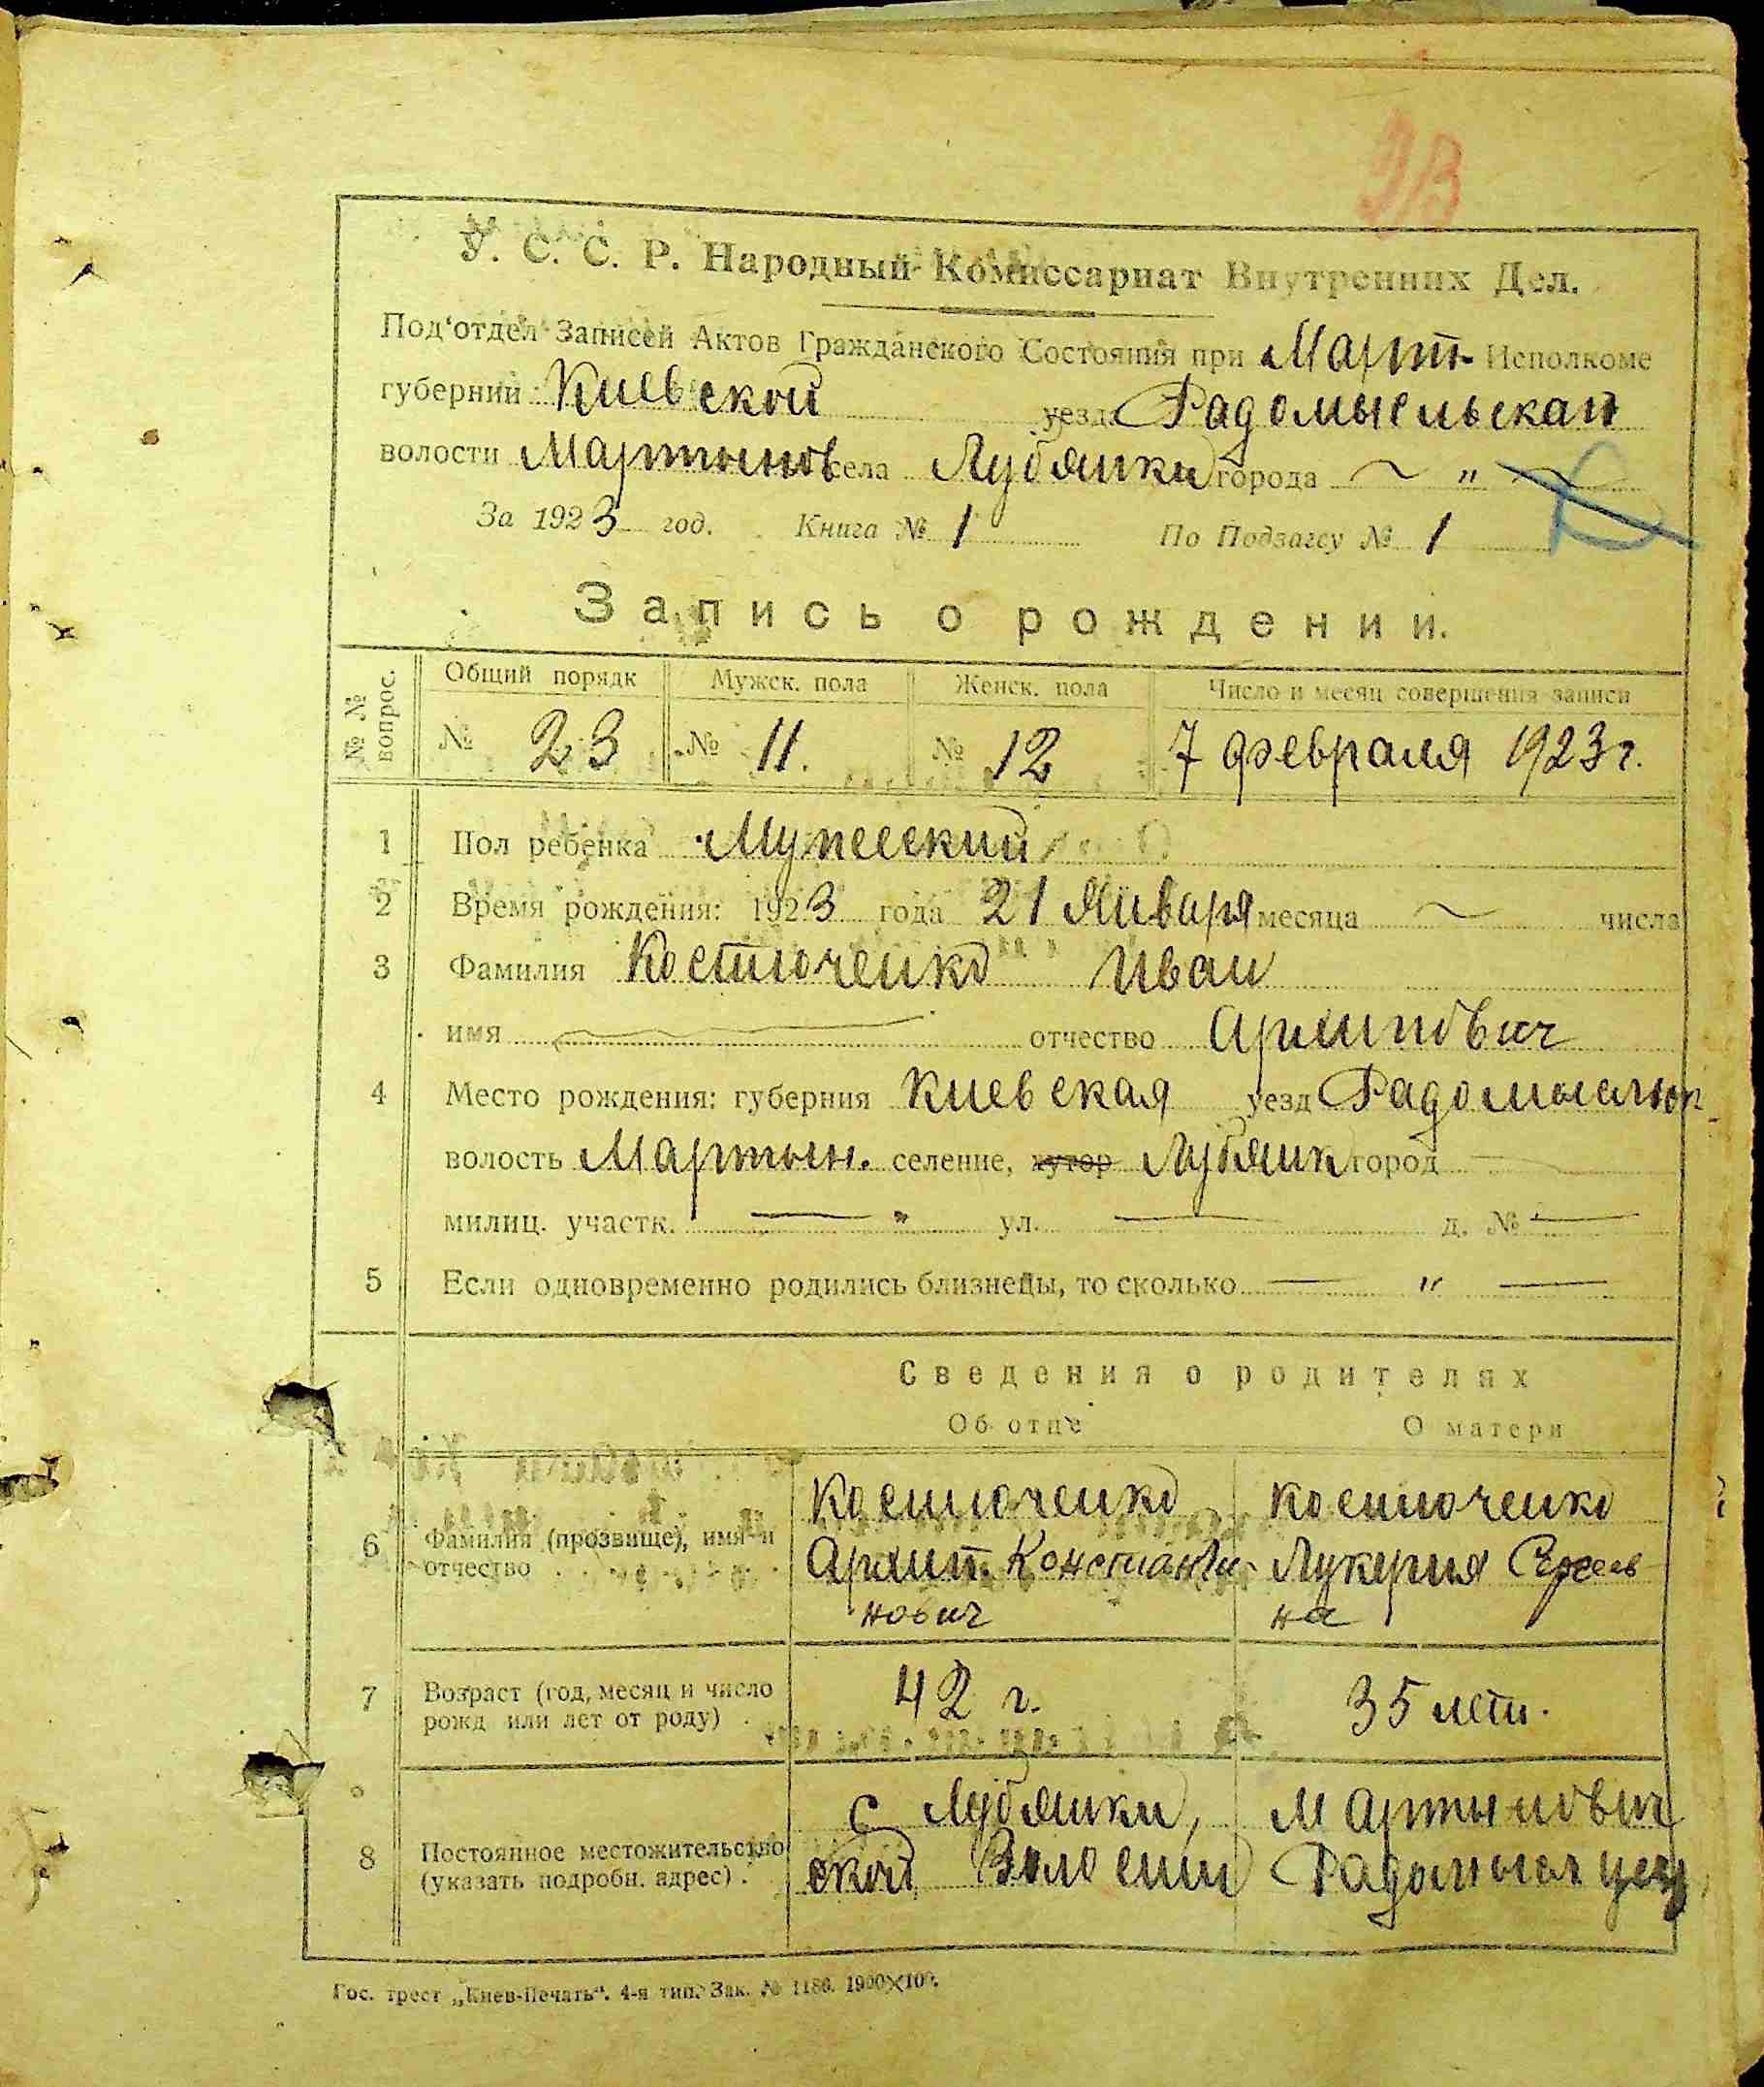 23
У. С. С. Р. Народный Комиссариат Внутренних Дел.
Под'отдел Записей Актов Гражданского Состояния при Март. Исполкоме
губернии Киевской уезд. Радомысльскаго
волости Мартынов. села Лубянки города ~ " ~
За 1923 год. Книга № 1 По Подзагсу № 1
Запись о рождении.
№ № вопрос. Общий порядк Мужск. пола Женск. пола Число и месяц совершения записи
№ 23 № 11. № 12 7 февраля 1923 г.
1 Пол ребенка Мужеский
2 Время рождения: 1923 года 21 Января месяца ~ числа
3 Фамилия Костюченко Иван
имя отчество Архипович
4 Место рождения: губерния Киевская уезд Радомысльск
волость Мартын. селение, хутор Лубянк город
милиц. участк. — " ул. — д. № —
5 Если одновременно родились близнецы, то сколько — " —
Сведения о родителях
Об отце О матери
6 Фамилия (прозвище), имя и отчество
Костюченко Костюченко
Архип. Константи- Лукерия Сергеев-
нович на
7 Возраст (год, месяц и число рожд или лет от роду) 42 г. 35 лет.
8 Постоянное местожительство (указать подробн. адрес).
с Лубянки, Мартынович
ской Волости Радомысл уез
Гос. трест „Киев-Печать". 4-я тип. Зак. № 1186. 1900×100.